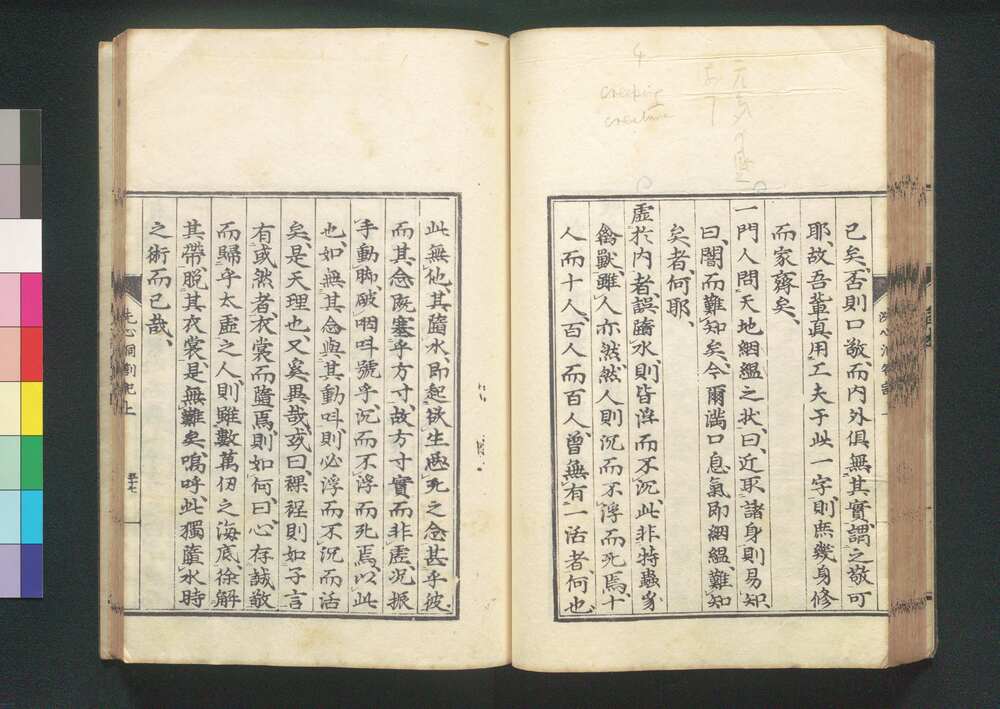 已矣、否則口敬、而內外俱無其實、謂之敬可
耶、故吾輩眞用工夫于此一字、則庶幾身修
而家齊矣、
一門人問天地絪縕之狀、曰、近取諸身則易知、
曰、闇而難知矣、今爾滿口息氣、即絪縕、難知
矣者、何耶、
虛於內者、誤墮水、則皆浮而不沉、此非特蟲豸
禽獸、雖人亦然、然人則沉而不浮而死焉、十
人而十人、百人而百人、曾無有一活者、何也、
此無他、其墮水、即起欲生惡死之念、甚乎彼、
而其念既塞乎方寸、故方寸實而非虛、況振
手動脚、破咽叫號乎、沉而不浮而死焉、以此
也、如無其念與其動叫、則必浮而不沉而活
矣、是天理也、又奚異哉、或曰、裸裎則如子言
有或然者、衣裳而墮焉、則如何、曰、心存誠敬
而歸乎太虛之人、則雖數萬仞之海底、徐解
其帶、脫其衣裳、是無難矣、嗚呼、此獨墮水時
之術而已哉、
洗心洞劄記上
creeping
creature